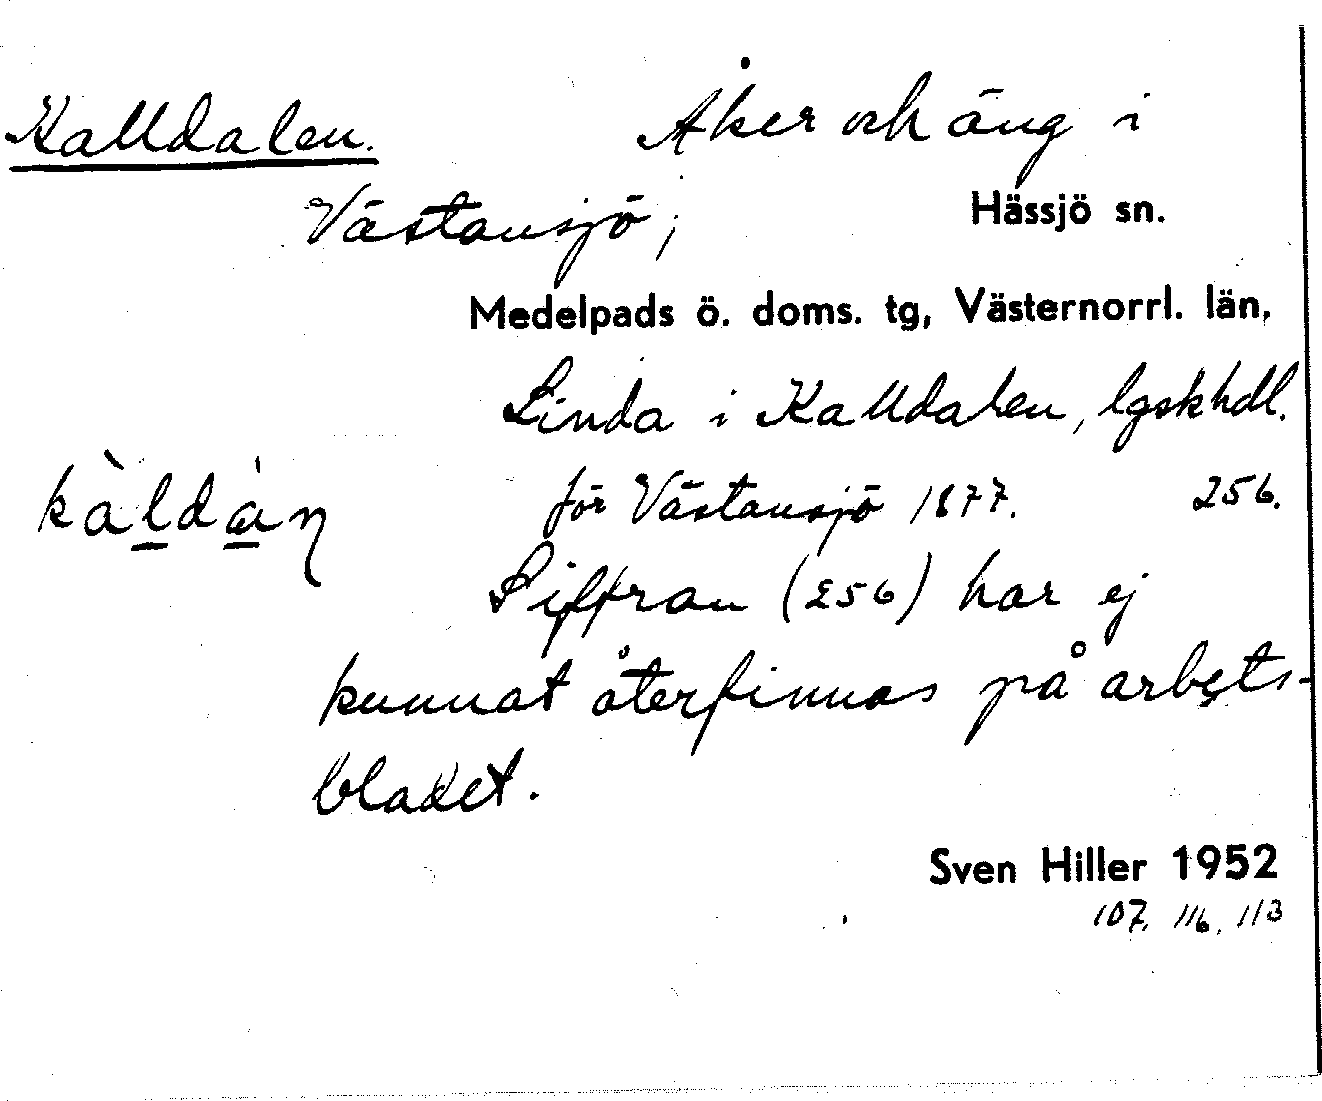 Kalldalen. Åker och äng i
Västansjö, Hässjö sn.
Medelpads ö. doms. tg, Västernorrl. län,
Linda i Kalldalen, lgskhdl.
kàldàn för Västansjö 1877. 256.
Siffran (256) har ej
kunnat återfinnas på arbets-
bladet.
Sven Hiller 1952
107, 116, 113